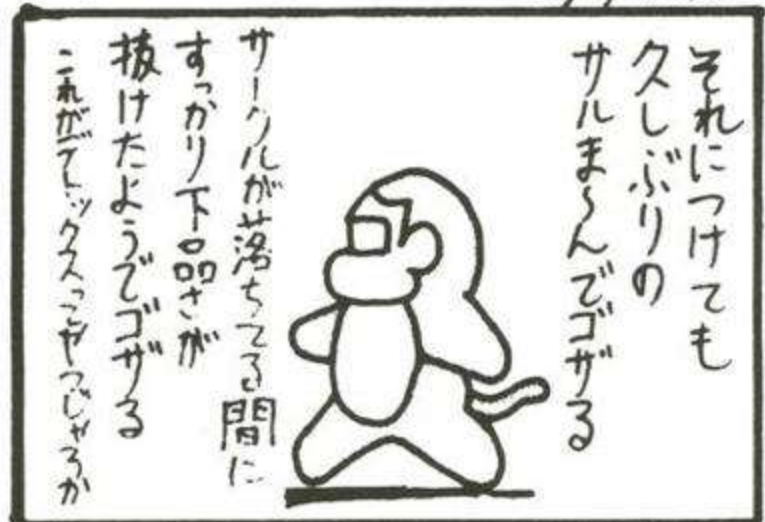 それにつけても
久しぶりの
サルま〜んでゴザる
サークルが落ちてる間に
すっかり下品さが
抜けたようでゴザる
これがデトックスってやつじゃろか